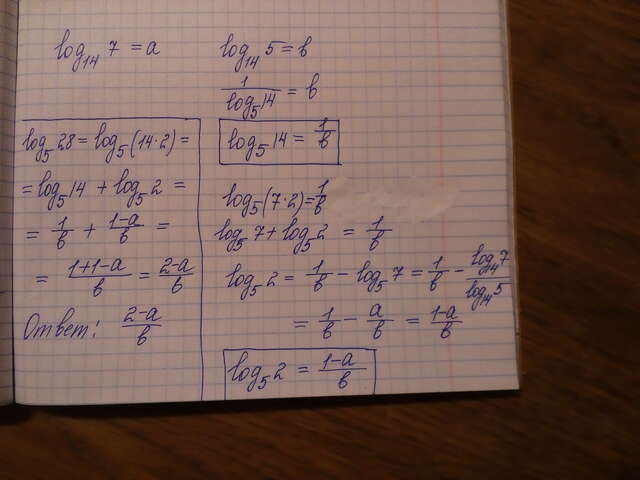 log₁₄ 7 = a
log₁₄ 5 = b
1/log₅14 = b
log₅14 = 1/b
log₅28 = log₅(14·2) =
= log₅14 + log₅2 =
= 1/b + (1-a)/b =
= (1+1-a)/b = (2-a)/b
Ответ: (2-a)/b
log₅(7·2) = 1/b
log₅7 + log₅2 = 1/b
log₅2 = 1/b - log₅7 = 1/b - log₁₄7/log₁₄5
= 1/b - a/b = (1-a)/b
log₅2 = (1-a)/b